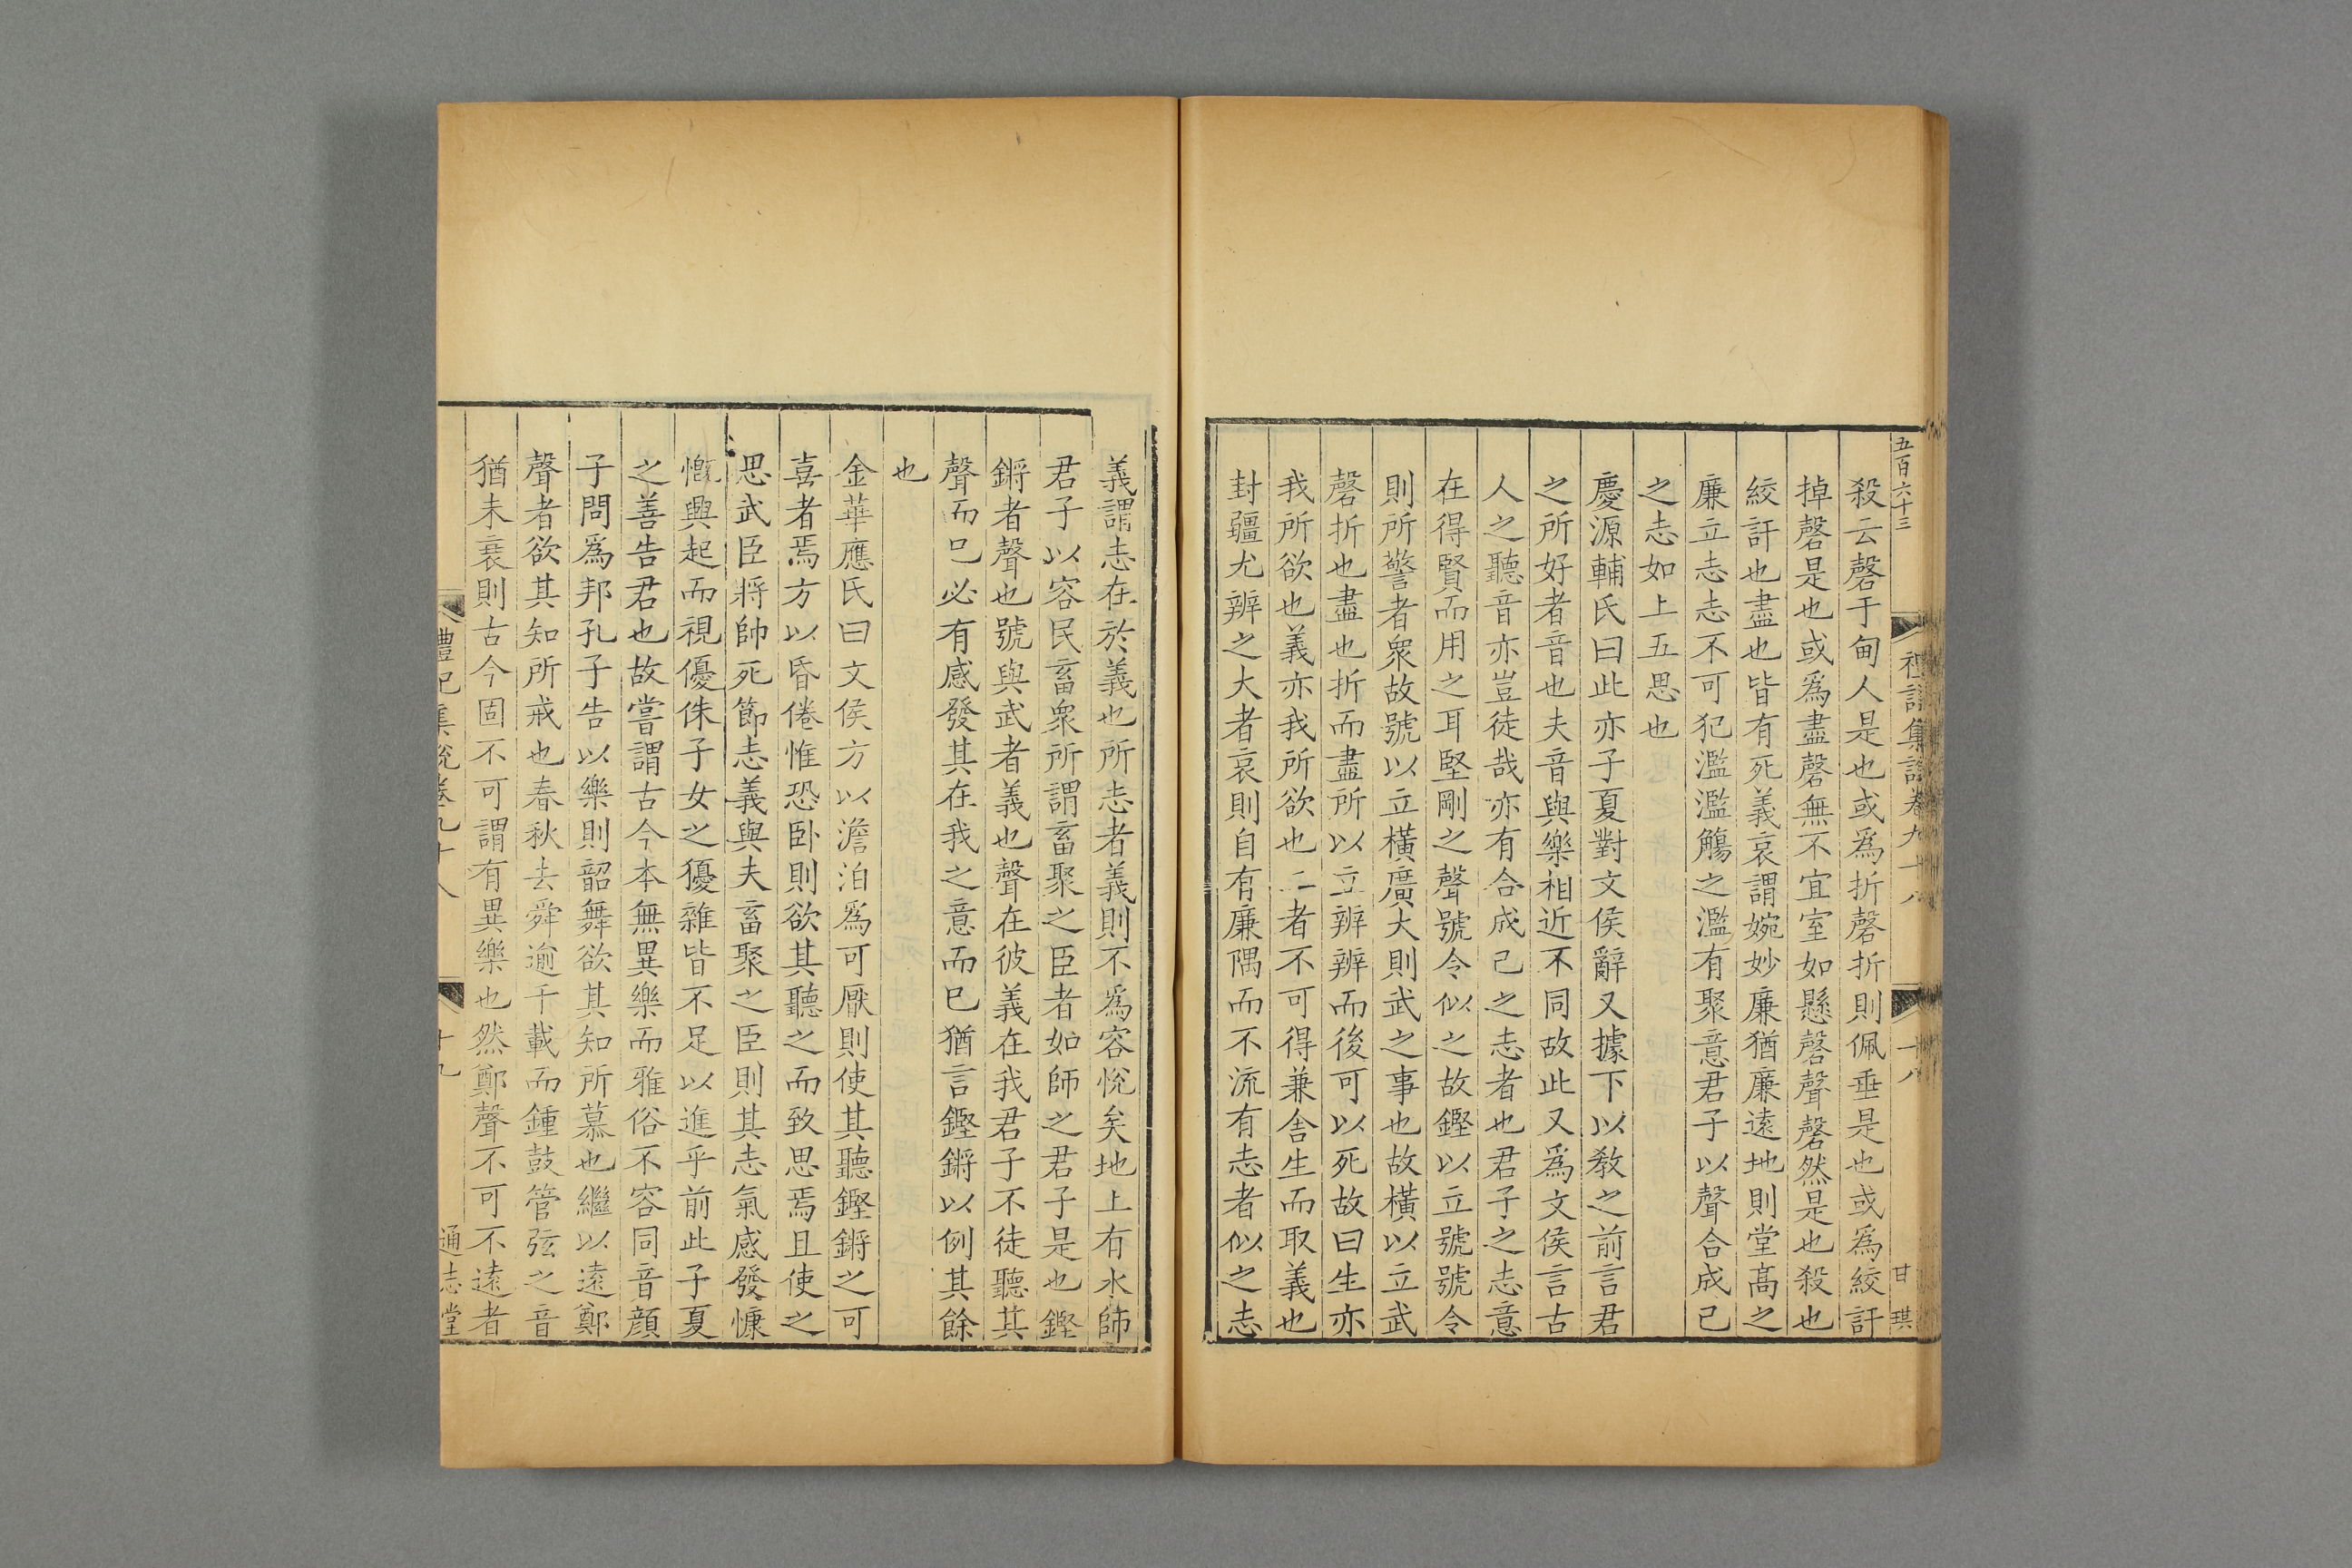 五百六十三
禮記集說卷九十八
十八
甘
琪
殺云磬于甸人是也或爲折磬折則佩垂是也或爲絞訐
掉磬是也或爲盡磬無不宜室如懸磬聲磬然是也殺也
絞訐也盡也皆有死義哀謂婉妙廉猶廉遠地則堂高之
廉立志志不可犯濫濫觴之濫有聚意君子以聲合成己
之志如上五思也
慶源輔氏曰此亦子夏對文侯辭又據下以教之前言君
之所好者音也夫音與樂相近不同故此又爲文侯言古
人之聽音亦豈徒哉亦有合成己之志者也君子之志意
在得賢而用之耳堅剛之聲號令似之故鏗以立號號令
則所警者衆故號以立橫廣大則武之事也故橫以立武
磬折也盡也折而盡所以立辨辨而後可以死故曰生亦
我所欲也義亦我所欲也二者不可得兼舍生而取義也
封疆尤辨之大者哀則自有廉隅而不流有志者似之志
義謂志在於義也所志者義則不爲容悅矣地上有水師
君子以容民畜衆所謂畜聚之臣者如師之君子是也鏗
鏘者聲也號與武者義也聲在彼義在我君子不徒聽其
聲而已必有感發其在我之意而已猶言鏗鏘以例其餘
也
金華應氏曰文侯方以澹泊爲可厭則使其聽鏗鏘之可
喜者焉方以昏倦惟恐卧則欲其聽之而致思焉且使之
思武臣將帥死節志義與夫畜聚之臣則其志氣感發慷
慨興起而視優侏子女之獶雜皆不足以進乎前此子夏
之善告君也故嘗謂古今本無異樂而雅俗不容同音顔
子問爲邦孔子告以樂則韶舞欲其知所慕也繼以遠鄭
聲者欲其知所戒也春秋去舜逾千載而鍾鼓管弦之音
猶未衰則古今固不可謂有異樂也然鄭聲不可不遠者
禮記集說卷九十八
十九
通志堂